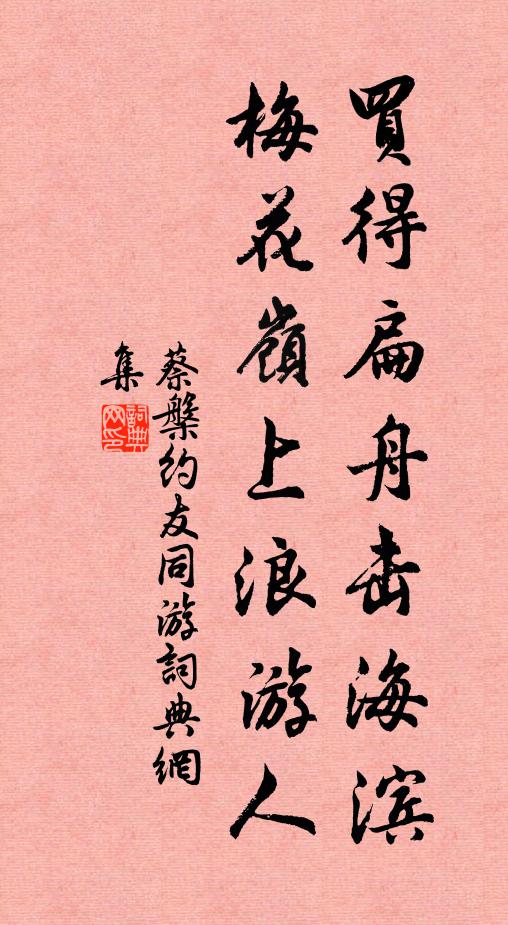 買得扁舟击海滨
梅花嶺上浪游人
蔡槃约友同游詞典網
集
詞典網印